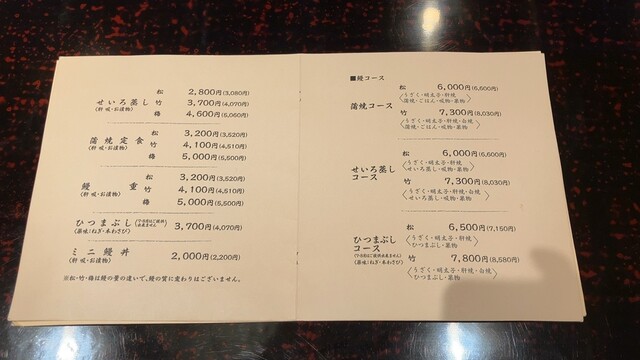 せいろ蒸し
(肝吸・お漬物)
松 2,800円(3,080円)
竹 3,700円(4,070円)
梅 4,600円(5,060円)
蒲焼定食
(肝吸・お漬物)
松 3,200円(3,520円)
竹 4,100円(4,510円)
梅 5,000円(5,500円)
鰻重
(肝吸・お漬物)
松 3,200円(3,520円)
竹 4,100円(4,510円)
梅 5,000円(5,500円)
ひつまぶし
(薬味:ねぎ・本わさび)
3,700円(4,070円)
ミニ鰻丼
(肝吸・お漬物)
2,000円(2,200円)
※松・竹・梅は鰻の量の違いで、鰻の質に変わりはございません。
■鰻コース
蒲焼コース
松 6,000円(6,600円)
うざく・明太子・肝焼
蒲焼・ごはん・吸物・果物
竹 7,300円(8,030円)
うざく・明太子・肝焼・白焼
蒲焼・ごはん・吸物・果物
せいろ蒸し
コース
松 6,000円(6,600円)
うざく・明太子・肝焼
せいろ蒸し・吸物・果物
竹 7,300円(8,030円)
うざく・明太子・肝焼・白焼
せいろ蒸し・吸物・果物
ひつまぶし
コース
(薬味:ねぎ・本わさび)
松 6,500円(7,150円)
うざく・明太子・肝焼
ひつまぶし・果物
竹 7,800円(8,580円)
うざく・明太子・肝焼・白焼
ひつまぶし・果物